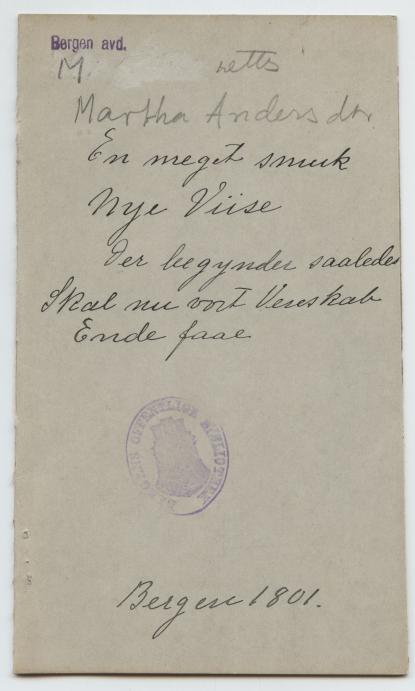 Bergen avd.
M
Martha Andersdtr
En meget smuk
Nye Viise
der begynder saaledes
Skal nu vort Venskab
Ende faae
BERGENS OFFENTLIGE BIBLIOTHEK
Bergen 1801.